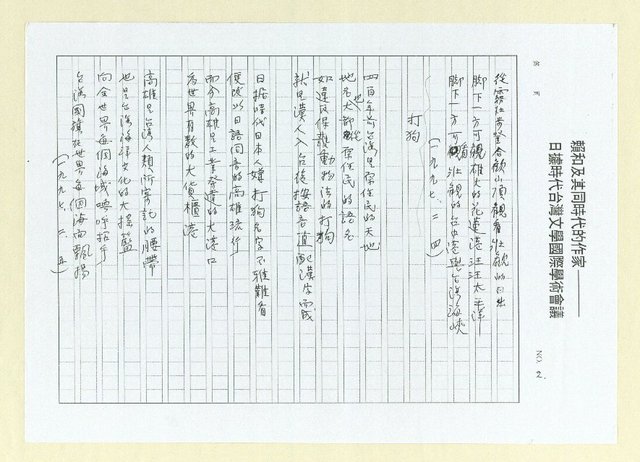 賴和及其同時代的作家——
日據時代台灣文學國際學術會議
NO. 2.
從霧社登合歡山頂觀看壯觀的日出
脚下一方可觀雄大的花蓮港汪汪太平洋
脚下一方可觀壯觀的台中港與台灣海峽
(一九九七、二、四)
打狗
四百年前台灣是原住民的天地
地名也大都從原住民的語名
如違反保護動物法的打狗
就是漢人入台後按語音直配漢字而成
日據時代日本人嫌打狗名字不雅難看
便改以日語同音的高雄流行
而今高雄是工業發達的大港口
為世界有數的大貨櫃港
高雄是台灣人類所寄託的腰帶
也是台灣海洋文化的大搖籃
向全世界每個海域呼招手
台灣國旗在世界每個海面飄揚
(一九九七、二、五)